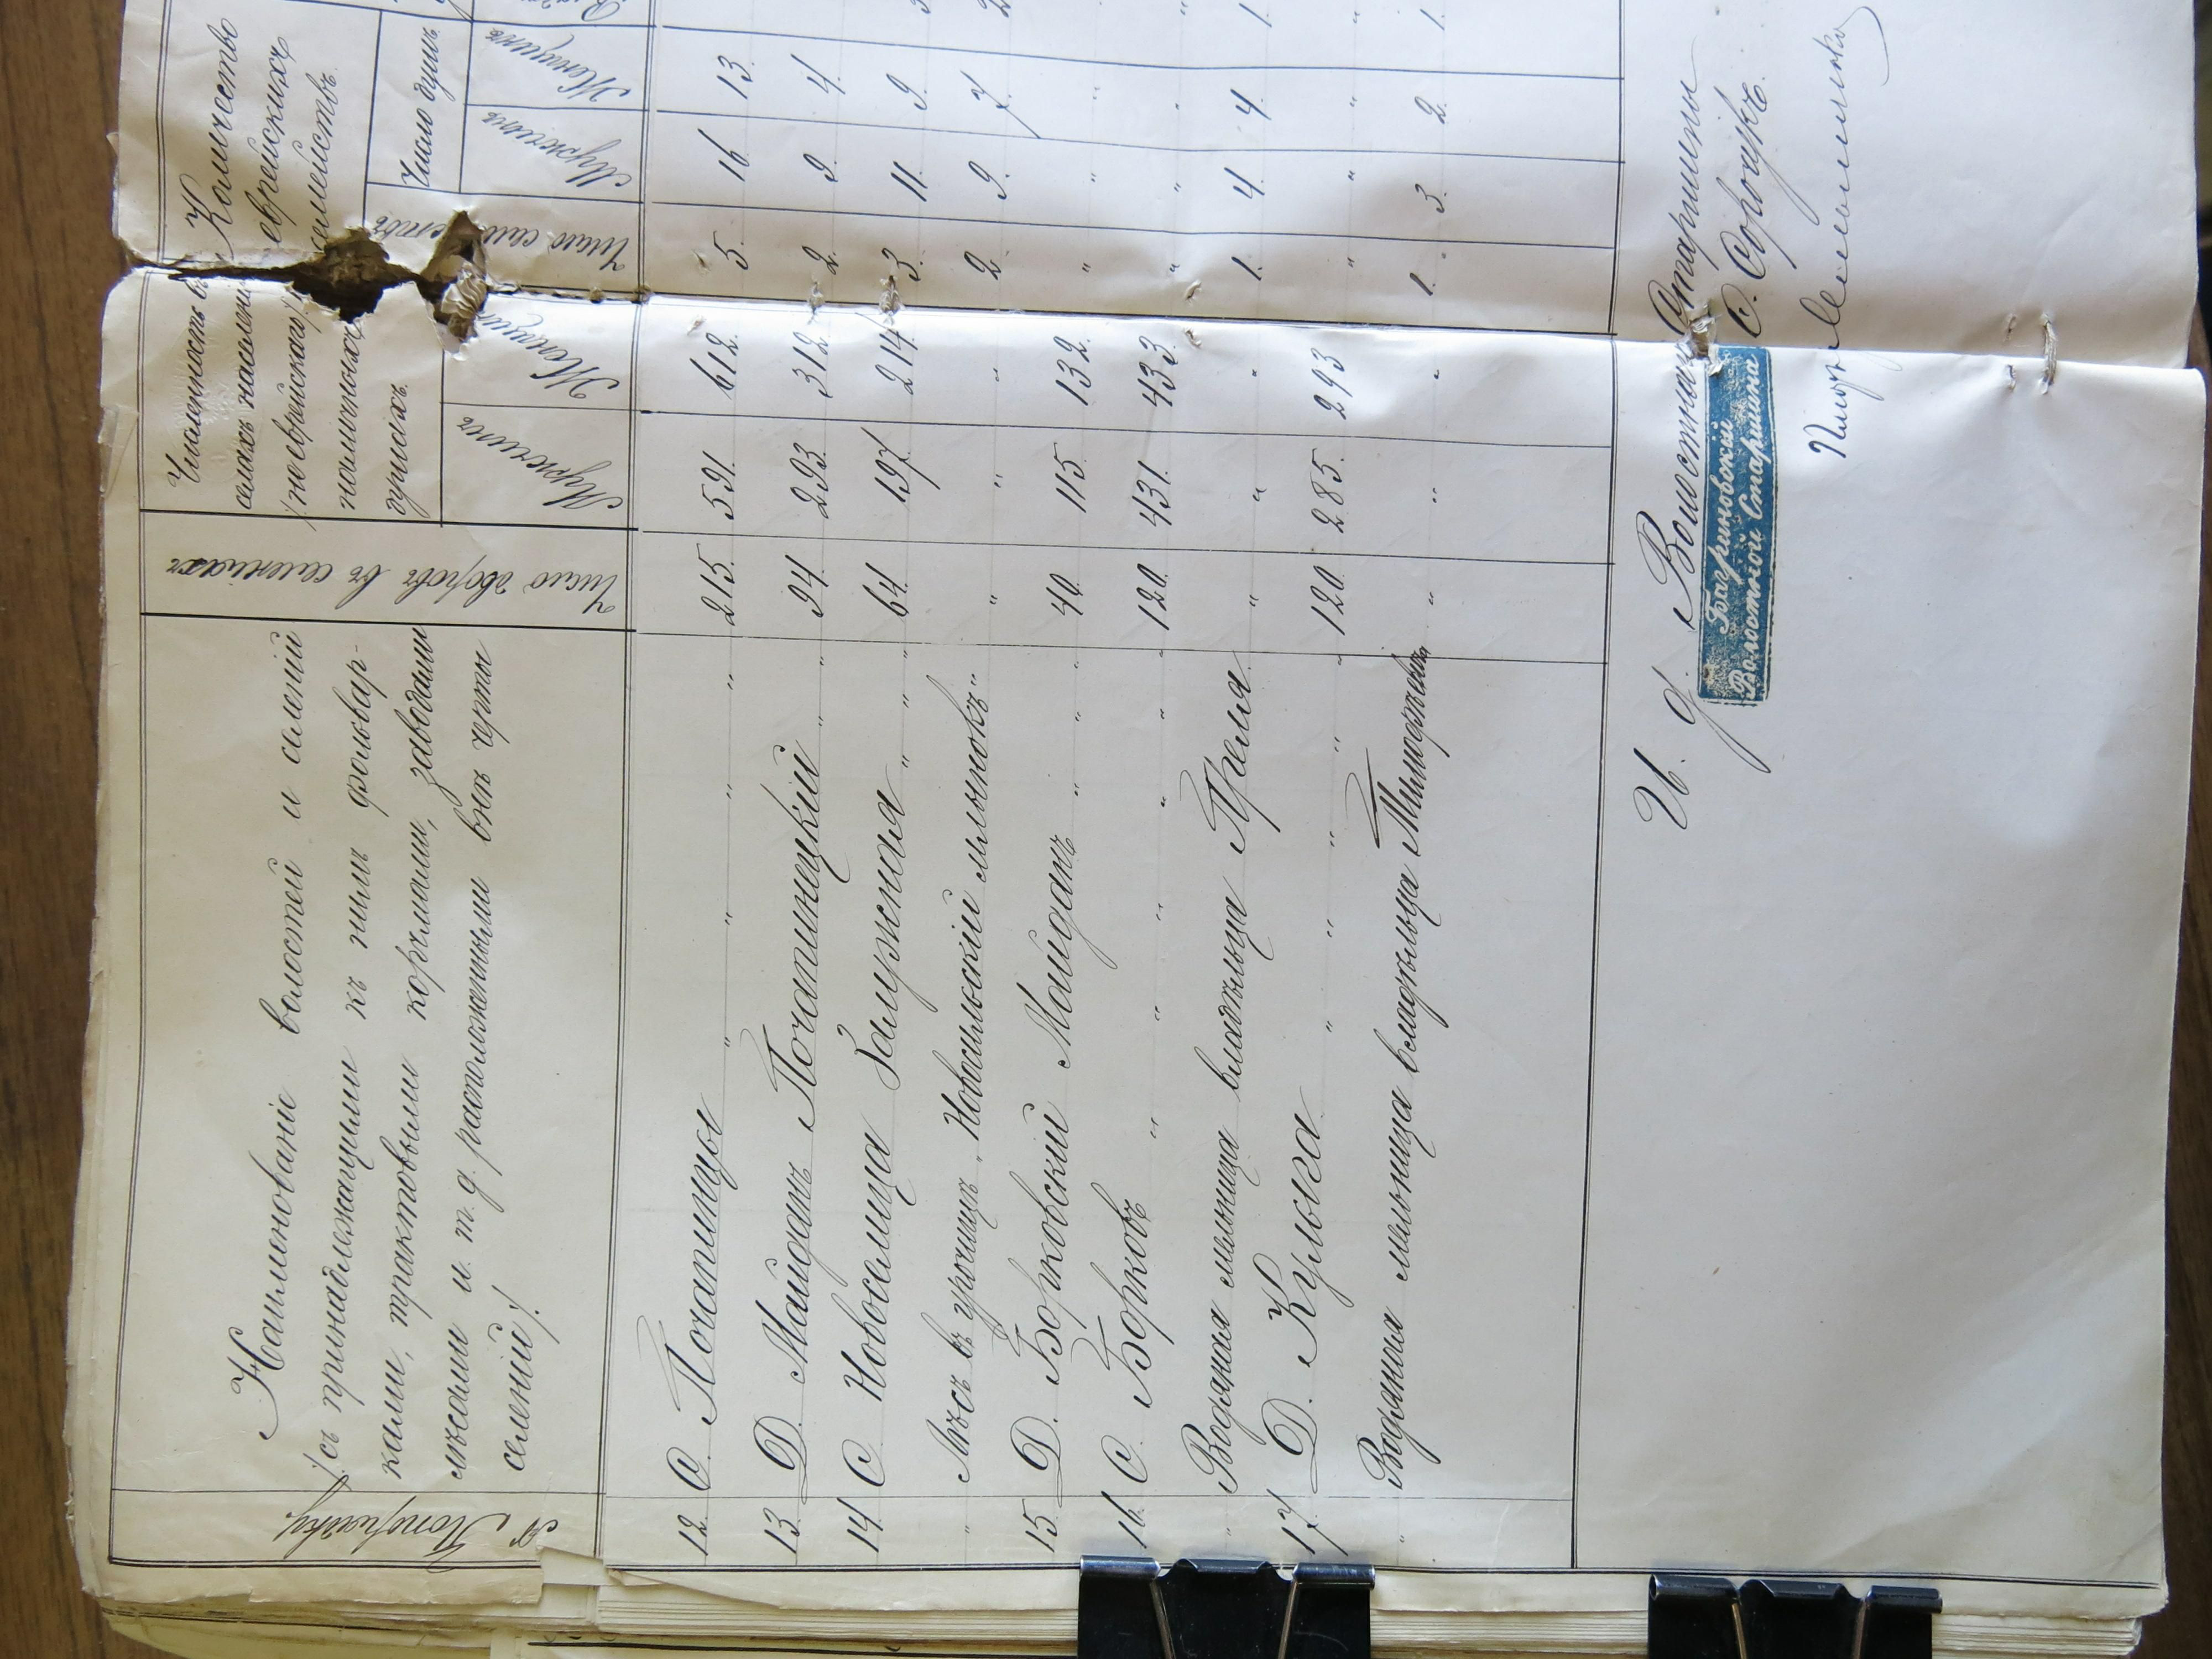 № Попорядку.
Наименованіе волостей и селеній
/съ принадлежащими къ нимъ фольвар-
ками, трактовыми корчмами, заводами
лѣсами и т. д. расположенными внѣ черты
селеній/.
Число дворовъ въ селеніяхъ
Численность въ
селахъ населенія
/нееврейскаго/
наличныхъ
душахъ.
Мужчинъ
Женщинъ
Количество
еврейскихъ
семействъ.
Число семействъ
Число душъ
Мужчинъ
Женщинъ
12 С. Почапинцы " " " " 215. 591. 612. 5. 16 13.
13. Д. Майданъ Почапинецкій " " 94. 293. 312. 2. 9. 4.
14 С Новоселица Залужная " " " 64. 197. 214. 3. 11. 9.
" Лѣсъ въ урочищѣ „Новосильскій млынокъ" " " " 2. 9. 7. 2
15. Д. Борковскій Майданъ " " " 40. 115. 132. " " " "
16. С. Борковъ " " " " " " 120. 431. 433. " " " "
" Водяная мельница владѣльца Треля " " " 1. 4. 4. 1.
17 Д. Кулька " " " " " " 120. 285. 293 " " "
" Водяная мельница владѣльца " " " 1. 3. 2. 1.
И. д. Волостнаго Старшины
С. Сорочукъ.
Багриновскій
Волостной Старшина
Писарь